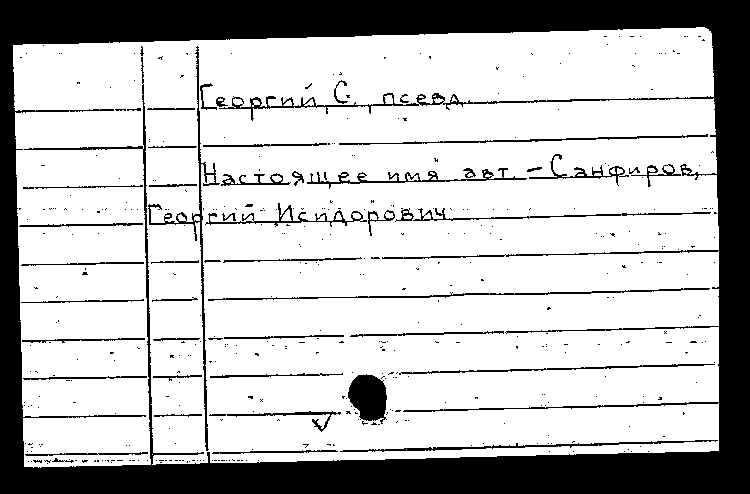 Георгий, С., псевд.
Настоящее имя авт. – Санфиров,
Георгий Исидорович.